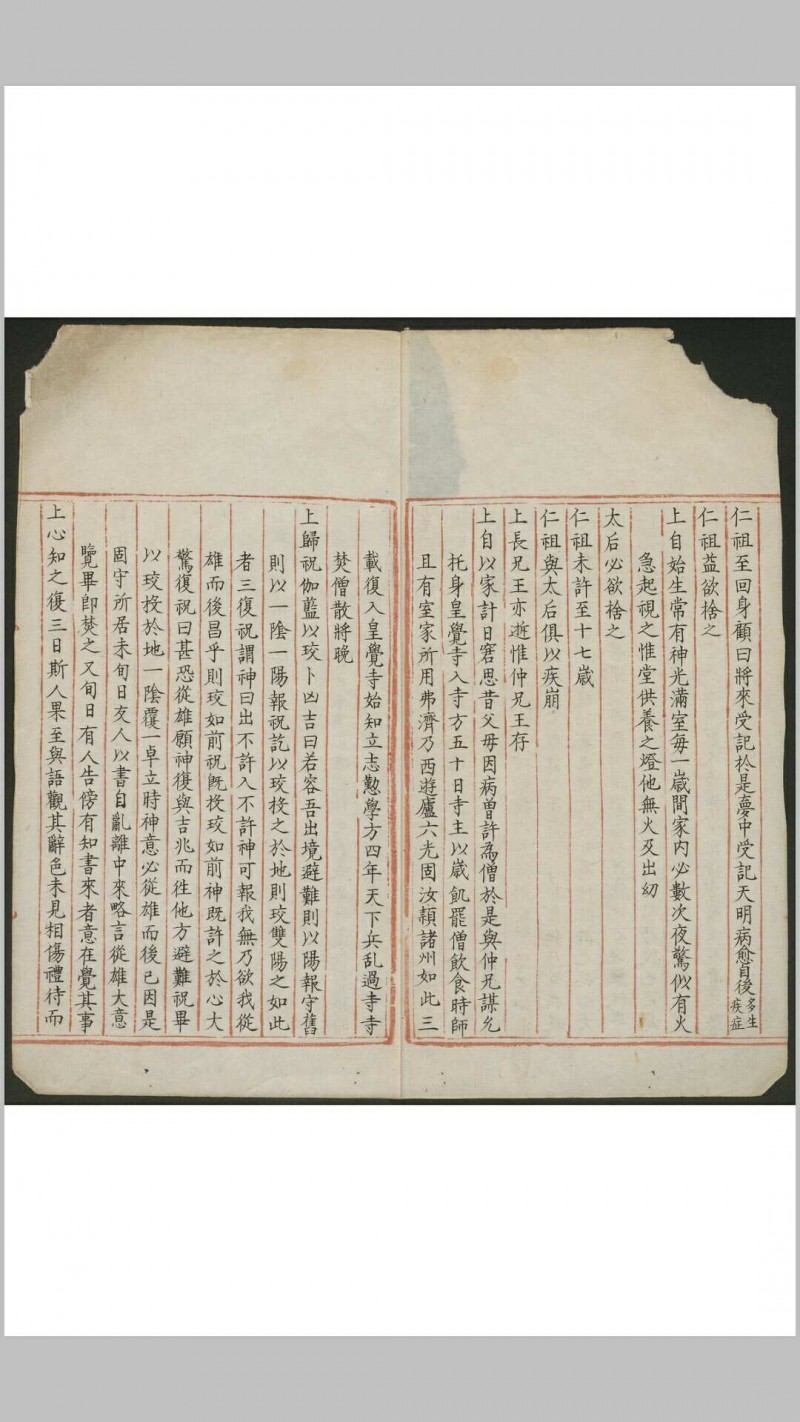 仁祖至回身顧曰將來受記於是夢中受記天明病愈自後多生疾症
仁祖益欲捨之
上自始生常有神光滿室每一歲間家内必數次夜驚似有火
急起視之惟堂供養之燈他無火及出幼
太后必欲捨之
仁祖未許至十七歲
仁祖與太后俱以疾崩
上長兄王亦逝惟仲兄王存
上自以家計日窘思昔父母因病曽許為僧於是與仲兄謀允
托身皇覺寺入寺方五十日寺主以歲飢罷僧飲食時師
且有室家所用弗濟乃西遊廬六光固汝潁諸州如此三
載復入皇覺寺始知立志懃學方四年天下兵乱過寺寺
焚僧散將晚
上歸祝伽藍以珓卜凶吉曰若容吾出境避難則以陽報守舊
則以一陰一陽報祝訖以珓投之於地則珓雙陽之如此
者三復祝謂神曰出不許入不許神可報我無乃欲我從
雄而後昌乎則珓如前祝既投珓如前神既許之於心大
驚復祝曰甚恐從雄願神復與吉兆而徃他方避難祝畢
以珓投於地一陰覆一卓立時神意必從雄而後已因是
固守所居未旬日友人以書自亂離中來略言從雄大意
覽畢即焚之又旬日有人告傍有知書來者意在覺其事
上心知之復三日斯人果至與語觀其辭色未見相傷禮待而